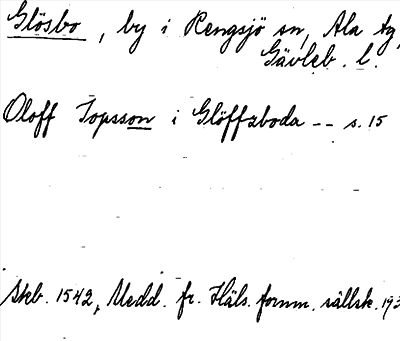 Glösbo, by i Rengsjö sn, Ala tg,
Gävleb. l.
Oloff Jopsson i Glöffzboda -- s. 15
Skb. 1542, Medd. fr. Häls. fornm. sällsk. 193